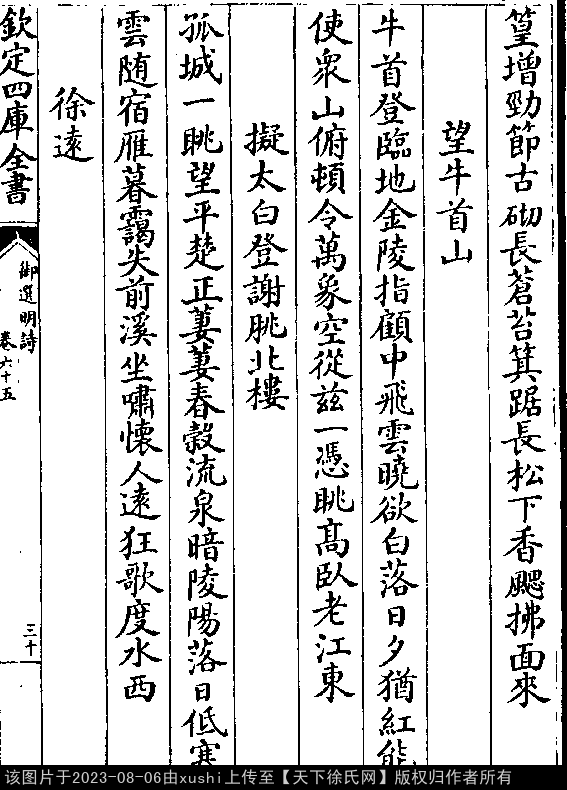 篁增勁節古砌長蒼苔箕踞長松下香颸拂面來
望牛首山
牛首登臨地金陵指顧中飛雲曉欲白落日夕猶紅能
使衆山俯頓令萬象空從兹一憑眺髙臥老江東
擬太白登謝朓北樓
孤城一眺望平楚正萋萋春榖流泉暗陵陽落日低寒
雲随宿雁暮靄失前溪坐嘯懷人遠狂歌度水西
徐遠
欽定四庫全書
御選明詩
卷六十五
三十
该图片于2023-08-06由xushi上传至【天下徐氏网】版权归作者所有